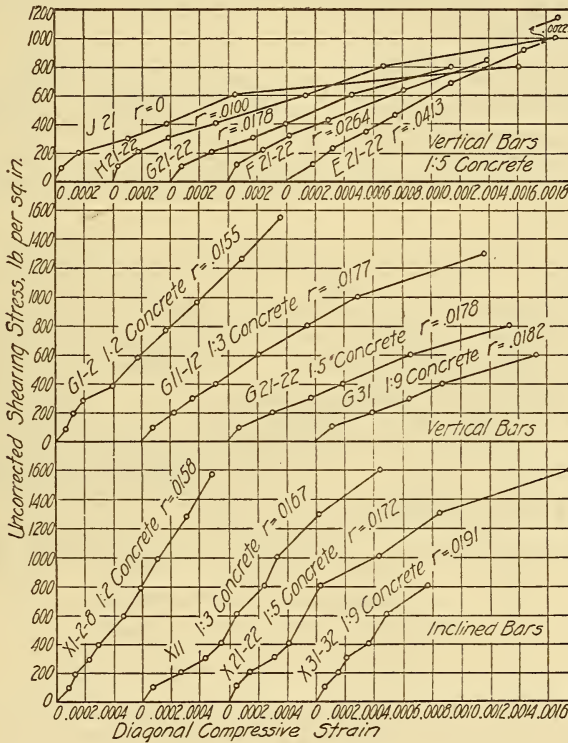 1200
1000
800
600
400
200
0
.0022
J 21 r=0
H21-22 r=.0100
G21-22 r=.0178
F 21-22 r=.0264
E 21-22 r=.0413
Vertical Bars
1:5 Concrete
0 .0002 0 .0002 0 .0002 0 .0002 0 .0002 .0004 .0006 .0008 .0010 .0012 .0014 .0016 .0018
Uncorrected Shearing Stress, lb. per sq. in.
1600
1400
1200
1000
800
600
400
200
0
G1-2 1:2 Concrete r=.0155
G11-12 1:3 Concrete r=.0177
G21-22 1:5 Concrete r=.0178
G31 1:9 Concrete r=.0182
Vertical Bars
1600
1400
1200
1000
800
600
400
200
0
X1-2-8 1:2 Concrete r=.0158
X11 1:3 Concrete r=.0167
X21-22 1:5 Concrete r=.0172
X31-32 1:9 Concrete r=.0191
Inclined Bars
0 .0002 .0004 0 .0002 .0004 0 .0002 .0004 0 .0002 .0004 .0006 .0008 .0010 .0012 .0014 .0016
Diagonal Compressive Strain